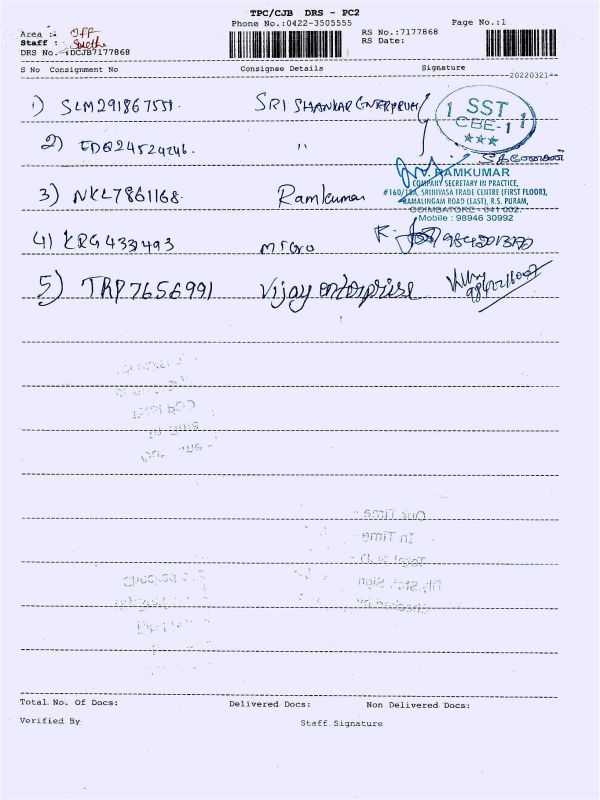 TPC/CJB DRS - PC2
Phone No.:0422-3505555 Page No.:1
Area : OFF RS No.:7177868
Staff : RS Date:
DRS No. :DCJB7177868
S No Consignment No Consignee Details Signature
20220321
1) SLM291867551. SRI SHANKAR ENTERPRISES
SST
CBE-1
1 1
★★★
2) EDQ24524246. ''
V. RAMKUMAR
COMPANY SECRETARY IN PRACTICE,
3) NKL7861168. Ramkumar #160/18A, SRINIVASA TRADE CENTRE (FIRST FLOOR),
RAMALINGAM ROAD (EAST), R.S. PURAM,
COIMBATORE - 641 002.
Mobile : 98946 30992
4) KRG4331493 micro
5) TRP7656991 Vijay enterprise
Out Time -
In Time -
Total No. Of Docs: Delivered Docs: Non Delivered Docs:
Verified By Staff Signature